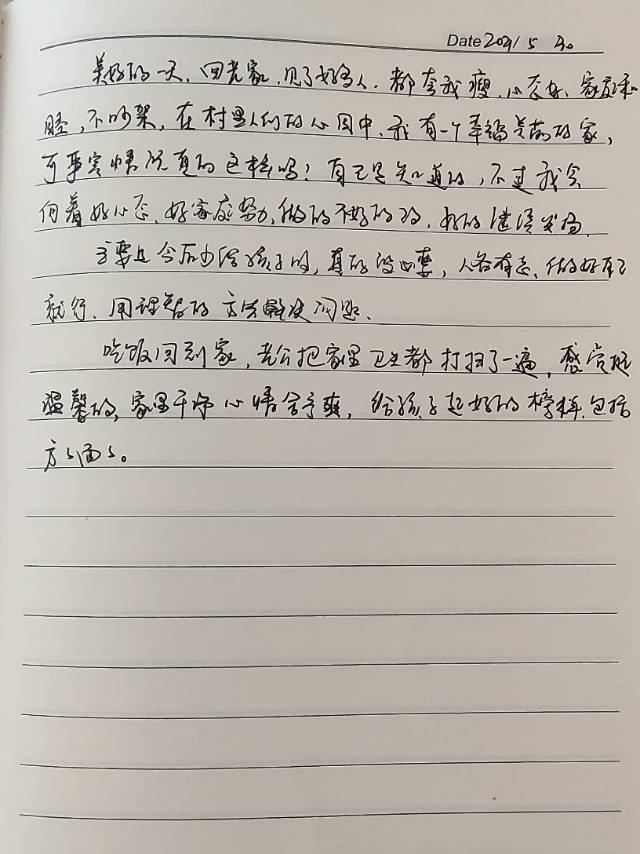 Date 2021 5 30
美好的一天，回老家，见了好多人，都夸我瘦，心态好，家庭和
睦，不吵架，在村里人们的心目中，我有一个幸福美满的家，
可事实情况真的这样吗？自己是知道的，不过我会
向着好心态，好家庭努力，做的不好的改，好的继续发扬，
主要是今后为给孩子的，真的没必要，人各有志，做好自己
就行，用理智的方法解决问题、
吃饭回到家，老公把家里卫生都打扫了一遍，感觉挺
温馨的，家里干净心情舍予爽，给孩子起好的榜样，包括
方方面面。